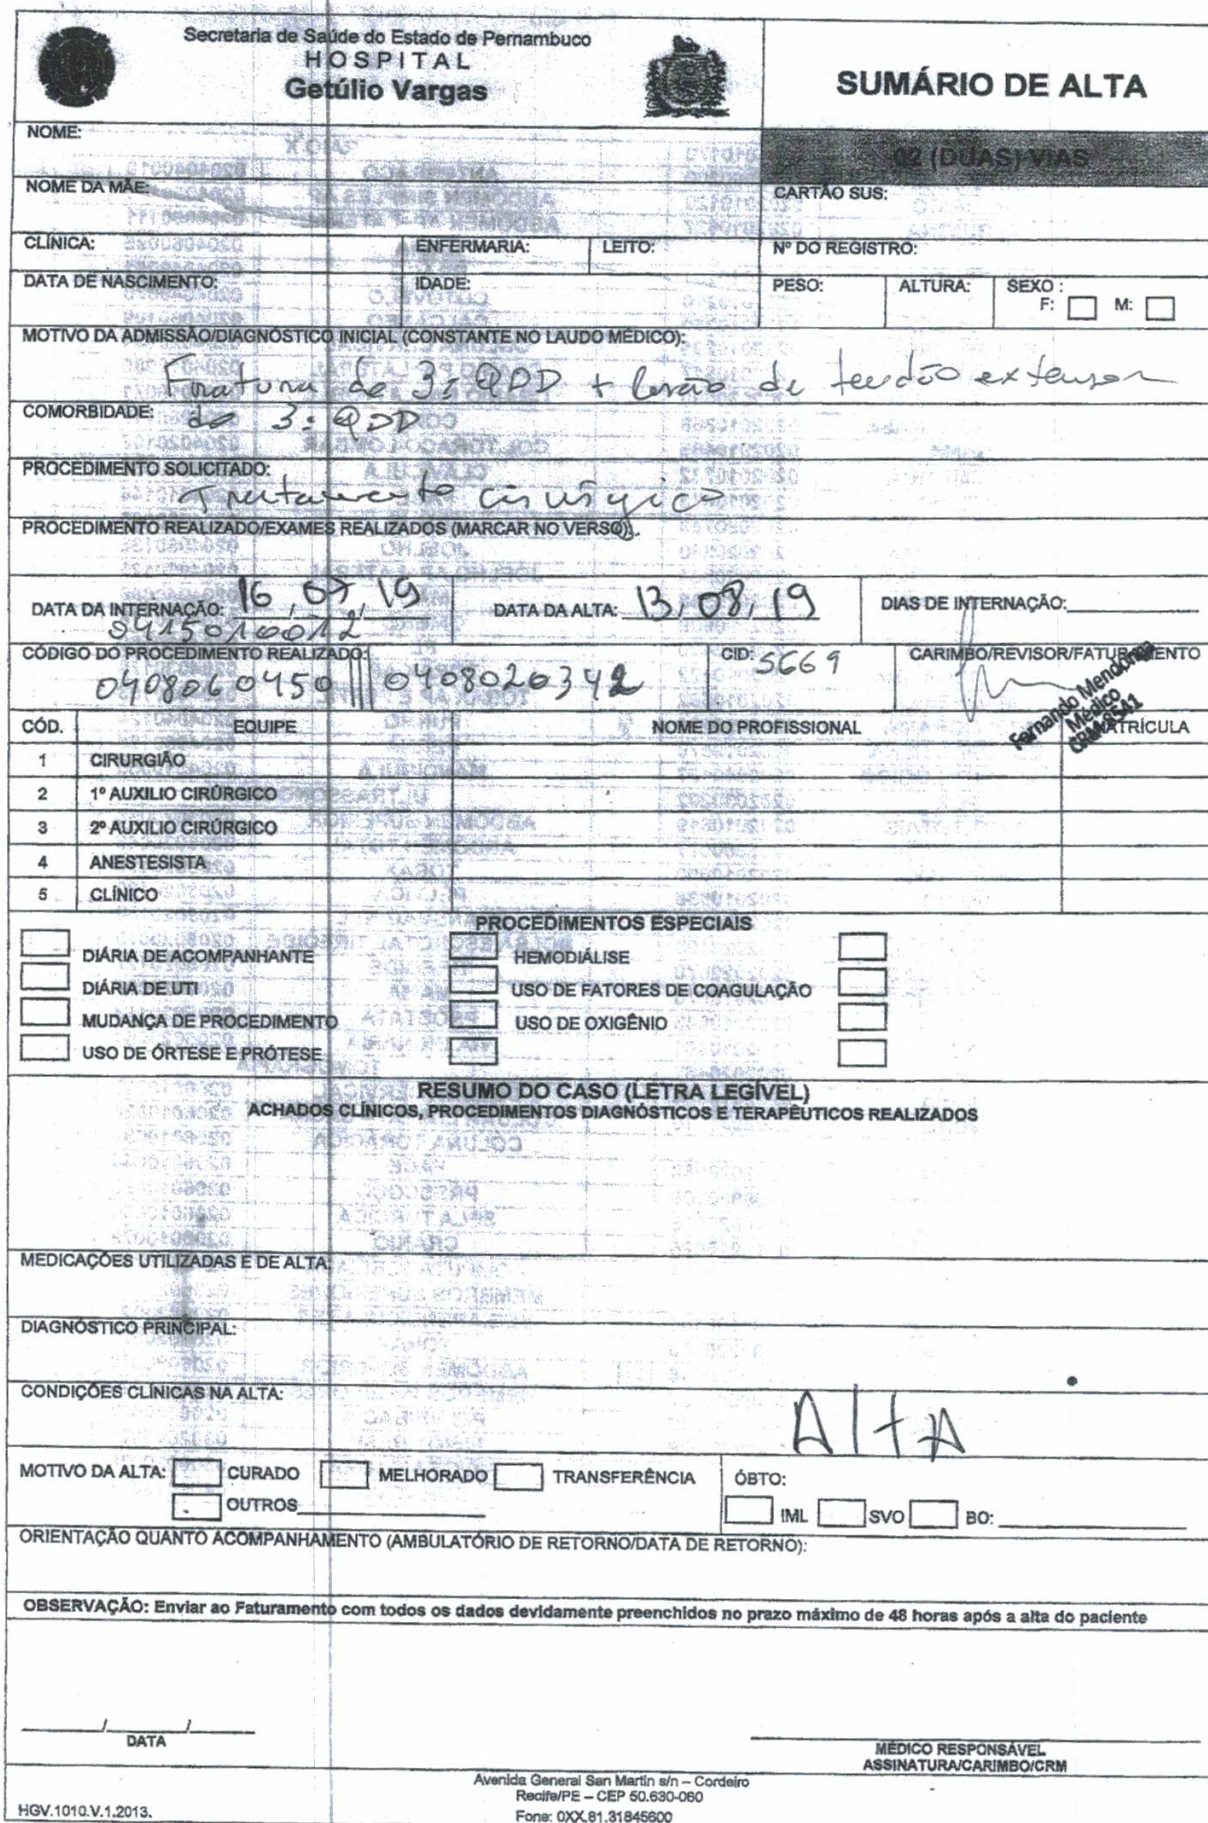 Secretaria de Saúde do Estado de Pernambuco
HOSPITAL
Getúlio Vargas
SUMÁRIO DE ALTA
NOME:
02 (DUAS) VIAS
NOME DA MÃE:
CARTÃO SUS:
CLÍNICA: ENFERMARIA: LEITO: Nº DO REGISTRO:
DATA DE NASCIMENTO: IDADE: PESO: ALTURA: SEXO :
F: M:
MOTIVO DA ADMISSÃO/DIAGNÓSTICO INICIAL (CONSTANTE NO LAUDO MÉDICO):
Fratura do 3º QDD + lesão de tendão extensor
COMORBIDADE: do 3º QDD
PROCEDIMENTO SOLICITADO:
Tratamento cirúrgico
PROCEDIMENTO REALIZADO/EXAMES REALIZADOS (MARCAR NO VERSO).
DATA DA INTERNAÇÃO: 16, 07, 19 DATA DA ALTA: 13, 08, 19 DIAS DE INTERNAÇÃO:
0415010012
CÓDIGO DO PROCEDIMENTO REALIZADO: CID: S669 CARIMBO/REVISOR/FATURAMENTO
0408060450 0408020342
Fernando Mendonça
Médico
CÓD. EQUIPE NOME DO PROFISSIONAL MATRÍCULA
1 CIRURGIÃO
2 1º AUXILIO CIRÚRGICO
3 2º AUXILIO CIRÚRGICO
4 ANESTESISTA
5 CLÍNICO
PROCEDIMENTOS ESPECIAIS
DIÁRIA DE ACOMPANHANTE HEMODIÁLISE
DIÁRIA DE UTI USO DE FATORES DE COAGULAÇÃO
MUDANÇA DE PROCEDIMENTO USO DE OXIGÊNIO
USO DE ÓRTESE E PRÓTESE
RESUMO DO CASO (LETRA LEGÍVEL)
ACHADOS CLÍNICOS, PROCEDIMENTOS DIAGNÓSTICOS E TERAPÊUTICOS REALIZADOS
MEDICAÇÕES UTILIZADAS E DE ALTA:
DIAGNÓSTICO PRINCIPAL:
CONDIÇÕES CLÍNICAS NA ALTA:
AltA
MOTIVO DA ALTA: CURADO MELHORADO TRANSFERÊNCIA ÓBTO:
OUTROS IML SVO BO:
ORIENTAÇÃO QUANTO ACOMPANHAMENTO (AMBULATÓRIO DE RETORNO/DATA DE RETORNO):
OBSERVAÇÃO: Enviar ao Faturamento com todos os dados devidamente preenchidos no prazo máximo de 48 horas após a alta do paciente
DATA
MÉDICO RESPONSÁVEL
ASSINATURA/CARIMBO/CRM
Avenida General San Martin s/n – Cordeiro
Recife/PE – CEP 50.630-060
HGV.1010.V.1.2013. Fone: 0XX.81.31845600